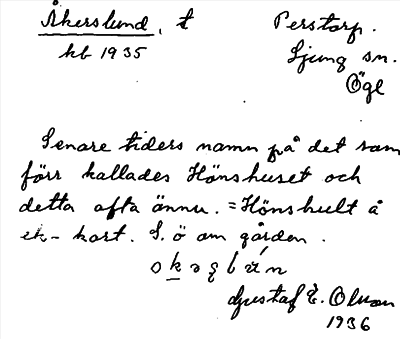 Åkerslund, t Perstorp.
kb 1935 Ljung sn.
Ögl
Senare tiders namn på det som
förr kallades Hönshuset och
detta ofta ännu. = Hönshult å
ek-kart. S. ö om gården.
Gustaf E. Olsson
1936